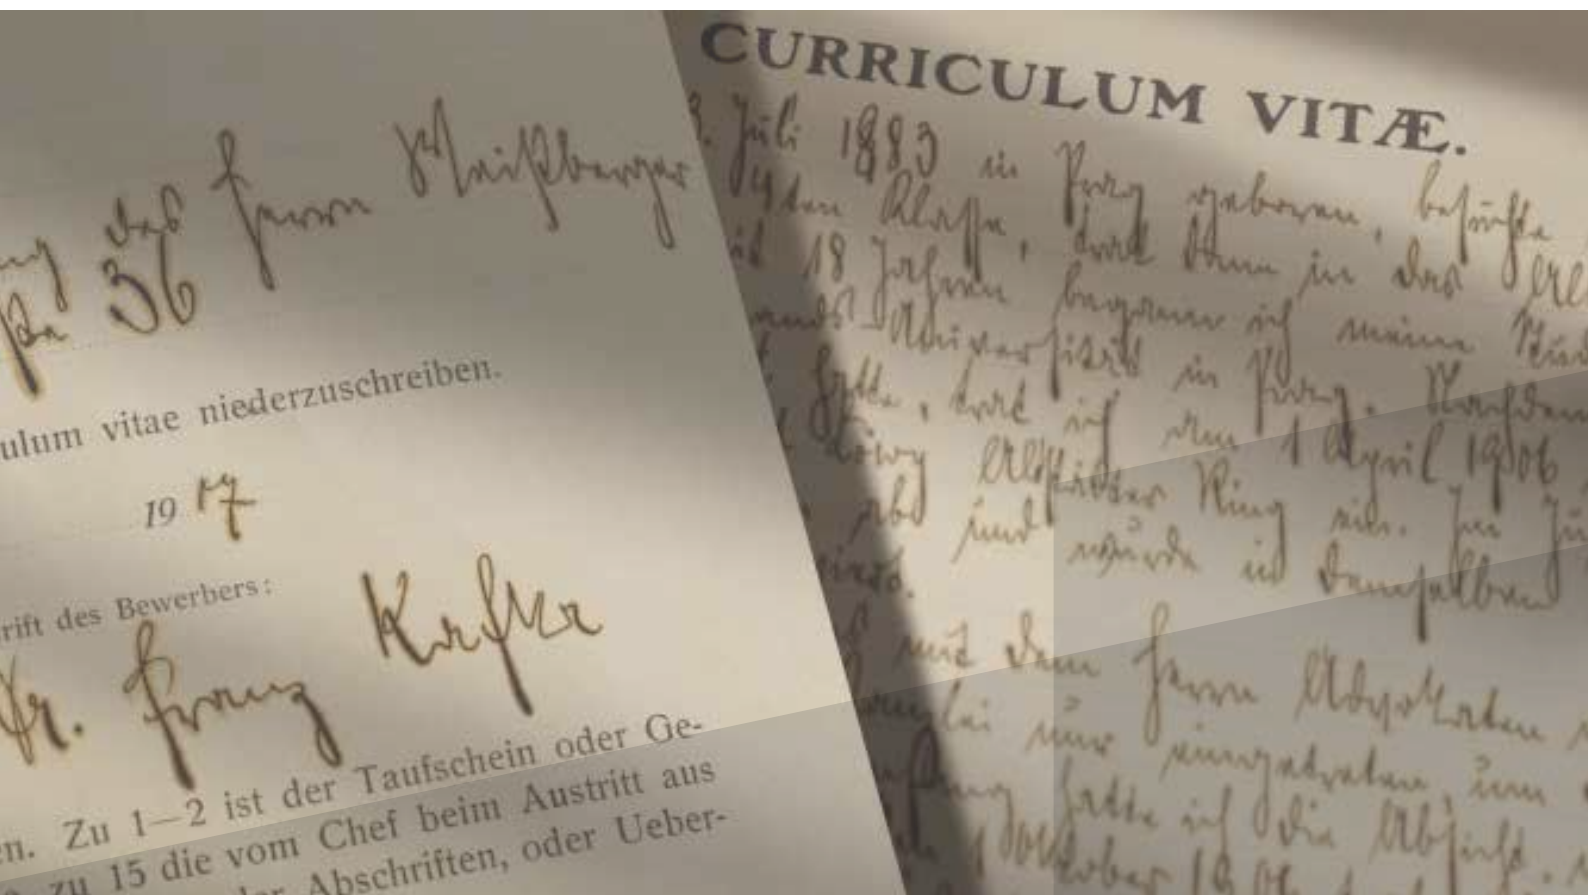 des Herrn Weißberger
36
ulum vitae niederzuschreiben.
19 07
rift des Bewerbers:
Dr. Franz Kafka
en. Zu 1—2 ist der Taufschein oder Ge-
zu 15 die vom Chef beim Austritt aus
Abschriften, oder Ueber-
CURRICULUM VITÆ.
3. Juli 1883 in Prag geboren, besuchte
4ten Klasse, trat dann in das
mit 18 Jahren begann ich meine
Universität in Prag. Nachdem
hatte, trat ich am 1 April 1906
Löwy Altstädter Ring ein. Im
ab und wurde in demselben
mit dem Herrn Advokaten
nur eingetreten, um
hatte ich die Absicht.
Oktober 1906